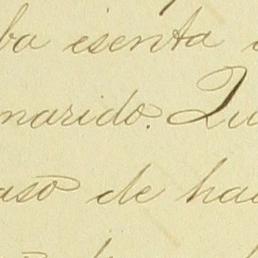 ba isenta
marido. Qu
aso de ha